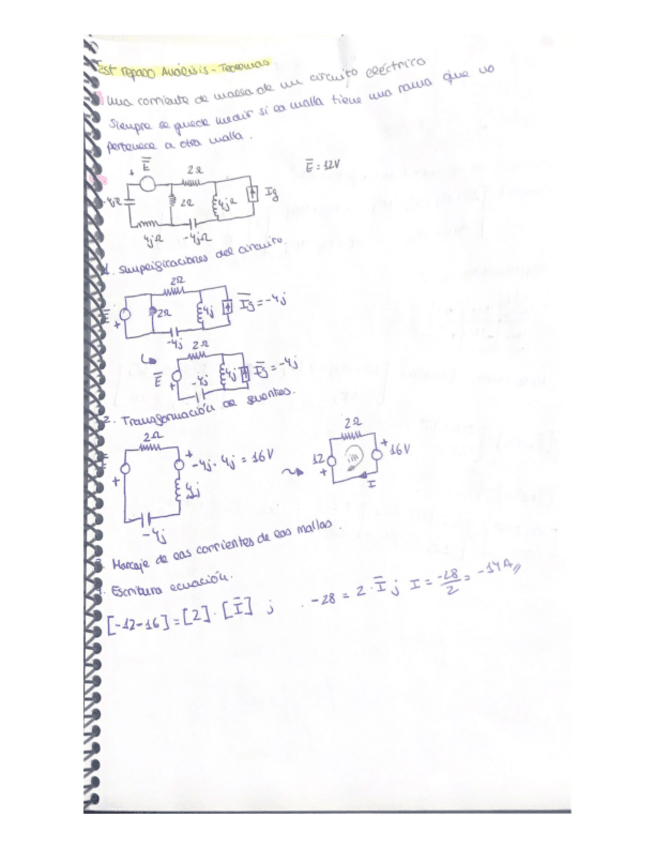 Test repaso Análisis - Teoremas
Una corriente de malla de un circuito eléctrico
siempre se puede medir si la malla tiene una rama que no
pertenece a otra malla.
+ E 2Ω E = 12V
-4jΩ 2Ω 4jΩ Ig
4jΩ -4jΩ
1. Simplificaciones del circuito
2Ω
E + 2Ω 4j Ig = -4j
-4j
2Ω
E + -4j 4j Ig = -4j
2. Transformación de fuentes.
2Ω 2Ω
E + + -4j · 4j = 16V 12 + im + 16V
4j I
-4j
3. Marcaje de las corrientes de las mallas.
4. Escritura ecuación.
[-12-16] = [2] · [I] ; -28 = 2 · I ; I = -28/2 = -14A